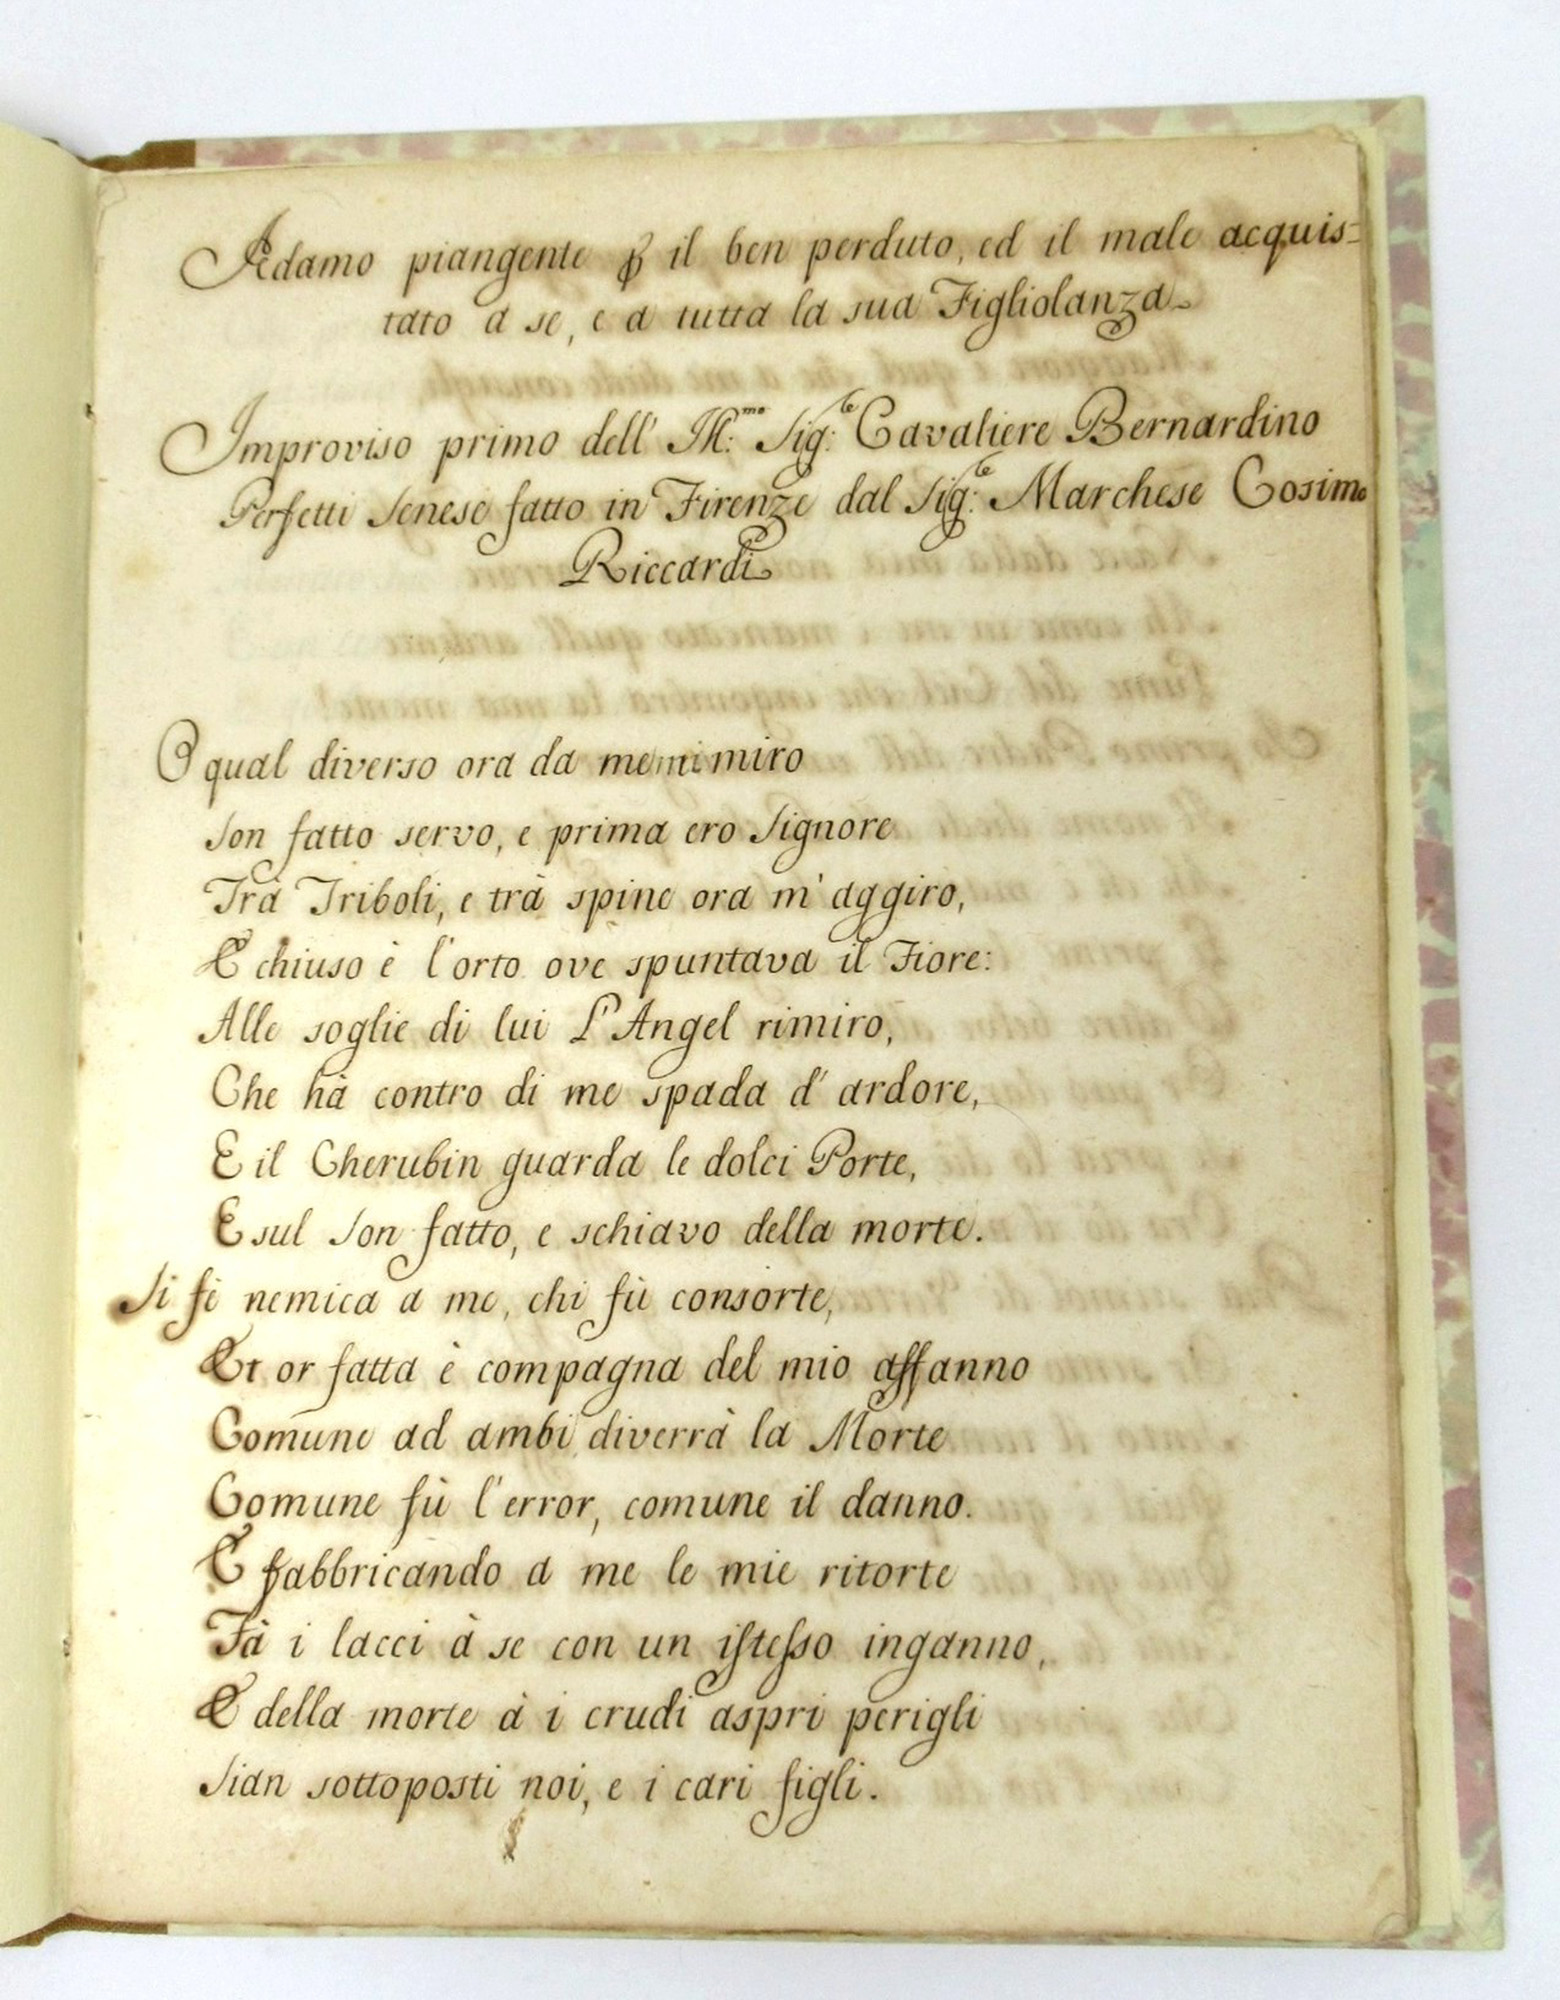 Adamo piangente ꝑ il ben perduto, ed il male acquis=
tato a se, e a tutta la sua Figliolanza
Improviso primo dell' Ill:mo Sig:le Cavaliere Bernardino
Perfetti Senese fatto in Firenze dal Sig:le Marchese Cosimo
Riccardi
O qual diverso ora da me mi miro
Son fatto servo, e prima ero Signore
Trà Triboli, e trà spine ora m' aggiro,
E chiuso è l'orto ove spuntava il Fiore:
Alle soglie di lui L'Angel rimiro,
Che hà contro di me spada d' ardore,
E il Cherubin guarda le dolci Porte,
Esul Son fatto, e schiavo della morte.
Si fè nemica a me, chi fù consorte,
Et or fatta è compagna del mio affanno
Comune ad ambi diverrà la Morte
Comune fù l'error, comune il danno.
E fabbricando a me le mie ritorte
Fà i lacci à se con un iſteſso inganno,
E della morte à i crudi aspri perigli
Sian sottoposti noi, e i cari figli.